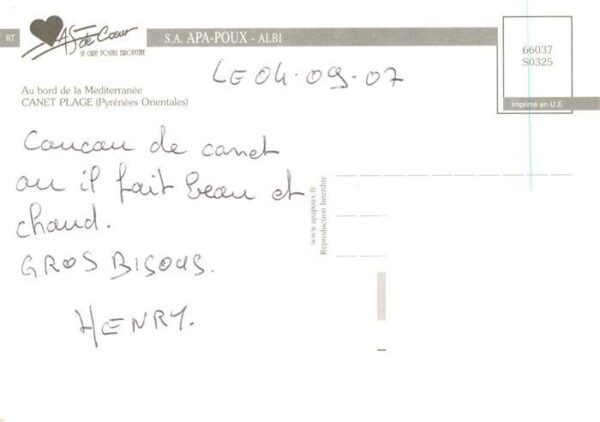 RT
AS de Cœur
LA CARTE POSTALE EUROPÉENNE
S.A. APA-POUX - ALBI
66037
S0325
Imprimé en U.E.
LE 04.09.07
Au bord de la Méditerranée
CANET PLAGE (Pyrénées Orientales)
Coucou de canet
ou il fait beau et
chaud.
GROS BISOUS.
HENRY.
www.apapoux.fr
Reproduction Interdite